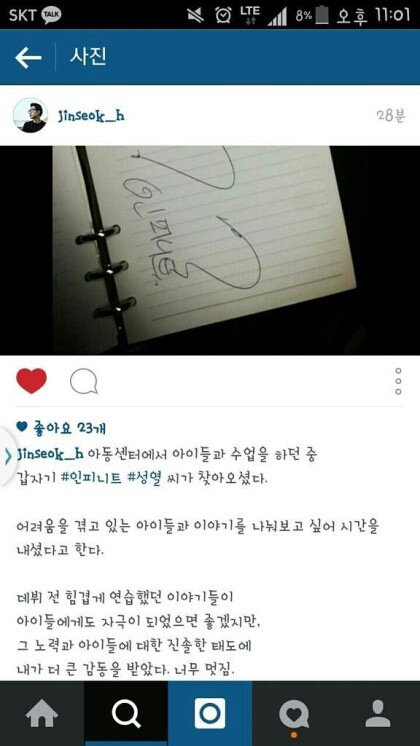 SKT TALK LTE 8% 오후 11:01
사진
jinseok_h 28분
좋아요 23개
jinseok_h 아동센터에서 아이들과 수업을 하던 중
갑자기 #인피니트 #성열 씨가 찾아오셨다.
어려움을 겪고 있는 아이들과 이야기를 나눠보고 싶어 시간을
내셨다고 한다.
데뷔 전 힘겹게 연습했던 이야기들이
아이들에게도 자극이 되었으면 좋겠지만,
그 노력과 아이들에 대한 진솔한 태도에
내가 더 큰 감동을 받았다. 너무 멋짐.